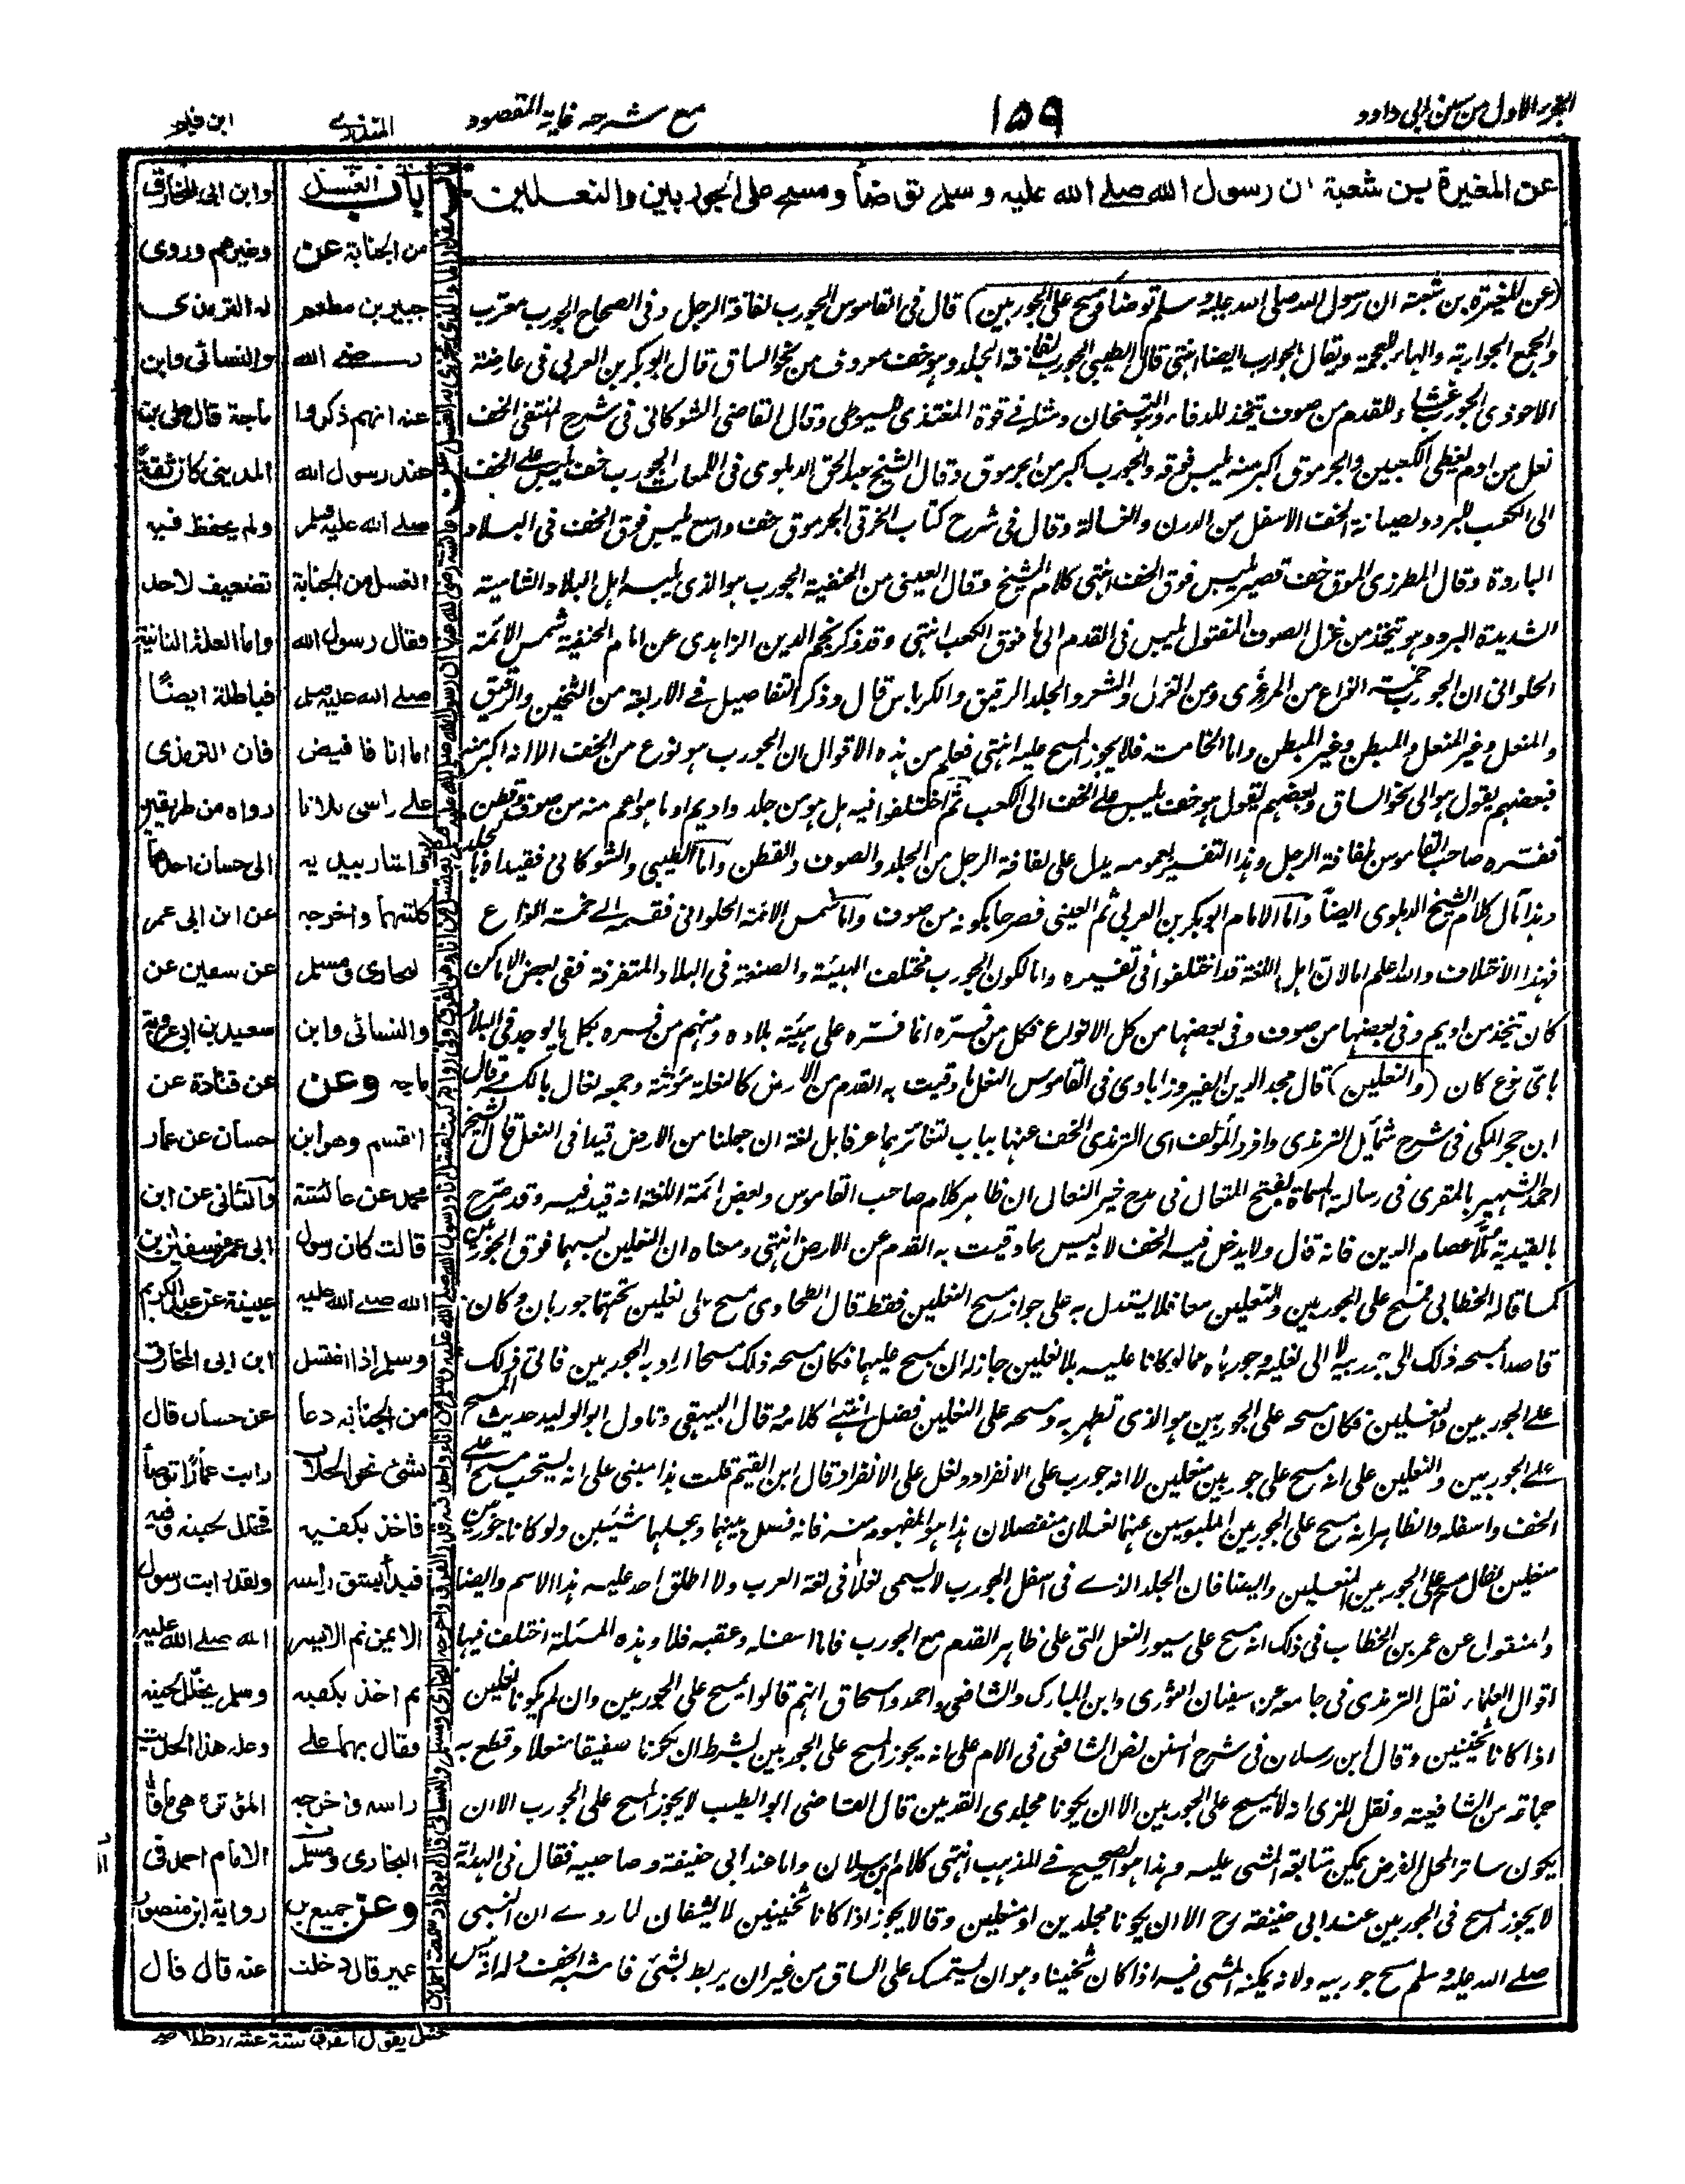 الجزء الاول من سنن ابی داود
١٥٩
مع شرحه غایة المقصود
المنذری
ابن قیم
عن المغیرة بن شعبة ان رسول الله صلے الله علیه وسلم توضأ ومسح علی الجوربین والنعلین
(عن المغیرة بن شعبة ان رسول الله صلی الله علیه وسلم توضأ ومسح علی الجوربین) قال فی القاموس الجورب لفافة الرجل وفی الصحاح الجورب معرّب
والجمع الجواربة والهاء للعجمة ویقال الجوارب ایضا انتهی قال الطیبی الجورب لفافة الجلد وهو خف معروف من نحو الساق قال ابو بکر بن العربی فی عارضة
الاحوذی الجورب غشاء للقدم من صوف یتخذ للدفاء وهو التسخان ومثله فی قوة المغتذی للسیوطی وقال القاضی الشوکانی فی شرح المنتقی الخف
نعل من ادم یغطی الکعبین والجرموق اکبر منه یلبس فوقه والجورب اکبر من الجرموق وقال الشیخ عبد الحق الدهلوی فی اللمعات الجورب خف یلبس علی الخف
الی الکعب للبرد ولصیانة الخف الاسفل من الدرن والغسالة وقال فی شرح کتاب الخرقی الجرموق خف واسع یلبس فوق الخف فی البلاد
الباردة وقال المطرزی الموق خف قصیر یلبس فوق الخف انتهی کلام الشیخ وقال العینی من الحنفیة الجورب هو الذی یلبسه اهل البلاد الشامیة
الشدیدة البرد وهو یتخذ من غزل الصوف المفتول یلبس فی القدم الی ما فوق الکعب انتهی وقد ذکر نجم الدین الزاهدی عن امام الحنفیة شمس الائمة
الحلوانی ان الجورب خمسة انواع من المرعزی ومن الغزل والشعر والجلد الرقیق والکرباس قال وذکر التفاصیل فی الاربعة من الثخین والرقیق
والمنعل وغیر المنعل والمبطن وغیر المبطن واما الخامسة فلا یجوز المسح علیه انتهی فعلم من هذه الاقوال ان الجورب هو نوع من الخف الا انه اکبر منه
فبعضهم یقول هو الی نحو الساق وبعضهم یقول هو خف یلبس علی الخف الی الکعب ثم اختلفوا فیه هل هو من جلد وادیم او ما هو اعم منه من صوف وقطن
ففسّره صاحب القاموس بلفافة الرجل وهذا التفسیر بعمومه یدل علی لفافة الرجل من الجلد والصوف والقطن واما الطیبی والشوکانی فقیداه بالجلد
وهذا مآل کلام الشیخ الدهلوی ایضا واما الامام ابو بکر بن العربی ثم العینی فصرحا بکونه من صوف واما شمس الائمة الحلوانی فقسمه الی خمسة انواع
فهذا الاختلاف والله اعلم اما لان اهل اللغة قد اختلفوا فی تفسیره واما لکون الجورب مختلف الهیئة والصنعة فی البلاد المتفرقة ففی بعض الاماکن
کان یتخذ من ادیم وفی بعضها من صوف وفی بعضها من کل الانواع فکل من فسّره انما فسّره علی هیئة بلاده ومنهم من فسره بکل ما یوجد فی البلاد
بای نوع کان (والنعلین) قال مجد الدین الفیروزابادی فی القاموس النعل ما وقیت به القدم من الارض کالنعلة مؤنثة وجمعه نعال بالکسر وقال
ابن حجر المکی فی شرح شمائل الترمذی وافرد المؤلف ای الترمذی الخف عنها بباب لتغائرهما عرفا بل لغة ان جعلنا من الارض قیدا فی النعل قال الشیخ
احمد الشهیر بالمقری فی رسالة المسماة بفتح المتعال فی مدح خیر النعال ان ظاهر کلام صاحب القاموس وبعض ائمة اللغة انه قید فیه وقد صرح
بالقیدیة ملا عصام الدین فانه قال ولا یدخل فیه الخف لانه لیس مما وقیت به القدم عن الارض انتهی ومعناه ان النعلین لبسهما فوق الجوربین
کما قاله الخطابی فمسح علی الجوربین والنعلین معا فلا یستدل به علی جواز مسح النعلین فقط قال الطحاوی مسح علی نعلین تحتهما جوربان وکان
قاصدا بمسحه ذلک الی جوربیه لا الی نعلیه وجورباه مما لو کانا علیه بلا نعلین جاز له ان یمسح علیهما فکان مسحه ذلک مسحا اراد به الجوربین فاتی ذلک
علی الجوربین والنعلین فکان مسحه علی الجوربین هو الذی تطهر به ومسحه علی النعلین فضل انتهی کلامه وقال البیهقی وتاول ابو الولید حدیث المسح
علی الجوربین والنعلین علی انه مسح علی جوربین منعلین لا انه جورب علی الانفراد ونعل علی الانفراد وقال ابن القیم قلت هذا مبنی علی انه یستحب مسح اعلی
الخف واسفله والظاهر انه مسح علی الجوربین الملبوسین علیهما نعلان منفصلان هذا هو المفهوم منه فانه فصل بینهما وجعلهما شیئین ولو کانا جوربین
منعلین لقال مسح علی الجوربین المنعلین وایضا فان الجلد الذی فی اسفل الجورب لا یسمی نعلا فی لغة العرب ولا اطلق احد علیه هذا الاسم وایضا
والمنقول عن عمر بن الخطاب فی ذلک انه مسح علی سیور النعل التی علی ظاهر القدم مع الجورب فاما اسفله وعقبه فلا وهذه المسئلة اختلف فیها
اقوال العلماء نقل الترمذی فی جامعه عن سفیان الثوری وابن المبارک والشافعی واحمد واسحاق انهم قالوا یمسح علی الجوربین وان لم یکونا نعلین
اذا کانا ثخینین وقال ابن رسلان فی شرح السنن نص الشافعی فی الام علی انه یجوز المسح علی الجوربین بشرط ان یکونا صفیقا منعلا وقطع به
جماعة من الشافعیة ونقل المزی انه لا یمسح علی الجوربین الا ان یکونا مجلدی القدمین قال القاضی ابو الطیب لا یجوز المسح علی الجورب الا ان
یکون ساترا لمحل الفرض یمکن متابعة المشی علیه وهذا هو الصحیح فی المذهب انتهی کلام ابن رسلان واما عند ابی حنیفة وصاحبیه فقال فی الهدایة
لا یجوز المسح فی الجوربین عند ابی حنیفة رح الا ان یکونا مجلدین او منعلین وقالا یجوز اذا کانا ثخینین لا یشفان لما روی ان النبی
صلی الله علیه وسلم مسح جوربیه ولانه یمکنه المشی فیه اذا کان ثخینا وهو ان یستمسک علی الساق من غیر ان یربط بشئ فاشبه الخف وله انه لیس
باب الغسل
من الجنابة عن
جبیر بن مطعم
رضی الله
عنه انهم ذکروا
عند رسول الله
صلے الله علیه وسلم
الغسل من الجنابة
فقال رسول الله
صلے الله علیه وسلم
اما انا فافیض
علے راسی ثلاثا
واشار بیدیه
کلتیهما واخرجه
البخاری ومسلم
والنسائی وابن
ماجه وعن
القسم وهو ابن
محمد عن عائشة
قالت کان رسول
الله صلے الله علیه
وسلم اذا اغتسل
من الجنابة دعا
بشئ نحو الحلاب
فاخذ بکفیه
فبدأ بشق راسه
الایمن ثم الایسر
ثم اخذ بکفیه
فقال بهما علے
راسه واخرجه
البخاری ومسلم
وعن جمیع بن
عمیر قال دخلت
وابن ابی المخارق
وغیرهم وروی
له الترمذی
والنسائی وابن
ماجة قال علی بن
المدینی کان ثقة
ولم یحفظ فیه
تضعیف لاحد
واما العلة الثانیة
فباطلة ایضًا
فان الترمذی
رواه من طریقین
الی حسان احدهما
عن ابن ابی عمر
عن سفین عن
سعید بن ابی عروبة
عن قتادة عن
حسان عن عمار
والثانی عن ابن
ابی عمر عن سفین بن
عیینة عن عبد الکریم
ابن ابی المخارق
عن حسان قال
رایت عمارًا توضأ
فخلل لحیته وفیه
ولقد رایت رسول
الله صلے الله علیه
وسلم یخلل لحیته
وعلة هذا الحدیث
المؤثرة هی ما قاله
الامام احمد فی
روایة ابن منصور
عنه قال قال